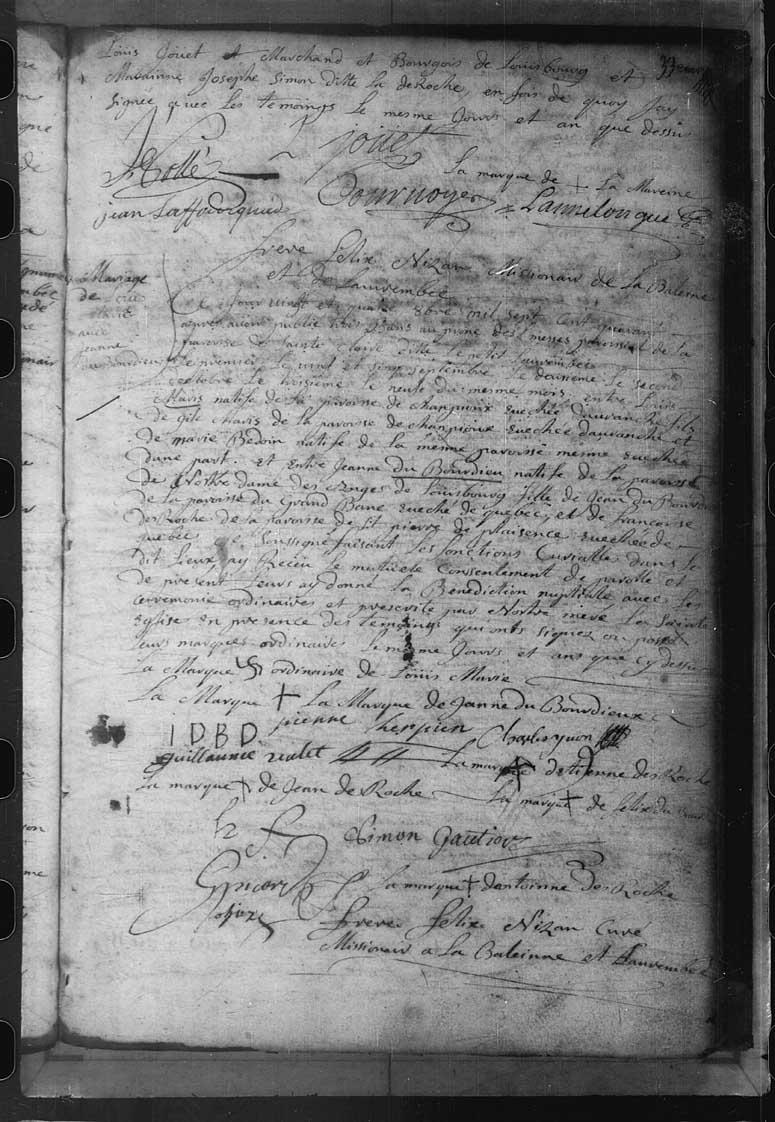 Louis Jouet et Marchand et Bourgois de Louisbourg et
Maraine Josephe Simon ditte la deRoche, en foix de quoy Jay
signée avec Les temoings Le mesme Jours et an que dessus
jouet
La marque de + La Mareine
Collé
Dournoyer
Lannelongue
jean Laffourcquade
frere felix Nizan Missionair de La Baleine
et de Laurembec
Mariage
de Louis
Marie
avec
Jeanne
du Bourdieu
Ce Jour vingt et quatre 8bre mil sept Cent quarant
apres avoir publié trois Bans au prone des messes paroissial de la
paroisse de Sainte Claire ditte Le petit Laurembec
Le premier Le vingt et cinq septembre Le deuxieme Le second
octobre Le troisieme Le neufe du mesme mois, entre Louis
Maris natife de la paroisse de Champioux evechée dauvanche fils
de gile Maris de la paroisse de Champioux evechée dauvanche et
de marie Bedoin natife de la mesme paroisse mesme evechée
dune part. et Entre Jeanne du Bourdieu natife de la paroisse
de Nostre dame des Anges de Louisbourg fille de Jean du Bourdieu
de la paroisse du Grand Banc evêché de quebec, et de francoise
desRoche de la paroisse de St pierre de plaisence evechée de
quebec je soussigné faisant Les fonctions Curialle dans le
dit Lieux Jay Receu Le mutuele Consentement de parolle et
de present Leurs ay donné La Benediction nuptialle avec Les
Cerremonie ordinaires et prescrite par Nostre mere La Sainte
Eglise en presence des temoings qui onts signez ou posez
Leurs marques ordinaires Le mesme Jours et ans que cy dessus
La Marque ordinaire de Louis Marie
La Marque + La Marque de Jeanne du Bourdieux
I D B D pienne therpien Charles yuon
guillaume
La marque + detienne des Roche
La marque + de Jean de Roche
La marque + de felix du
h f Simon Gautier
La marque + dantoinne Des Roche
frere felix Nizan Curé
Missionair a La Baleinne et Laurembec